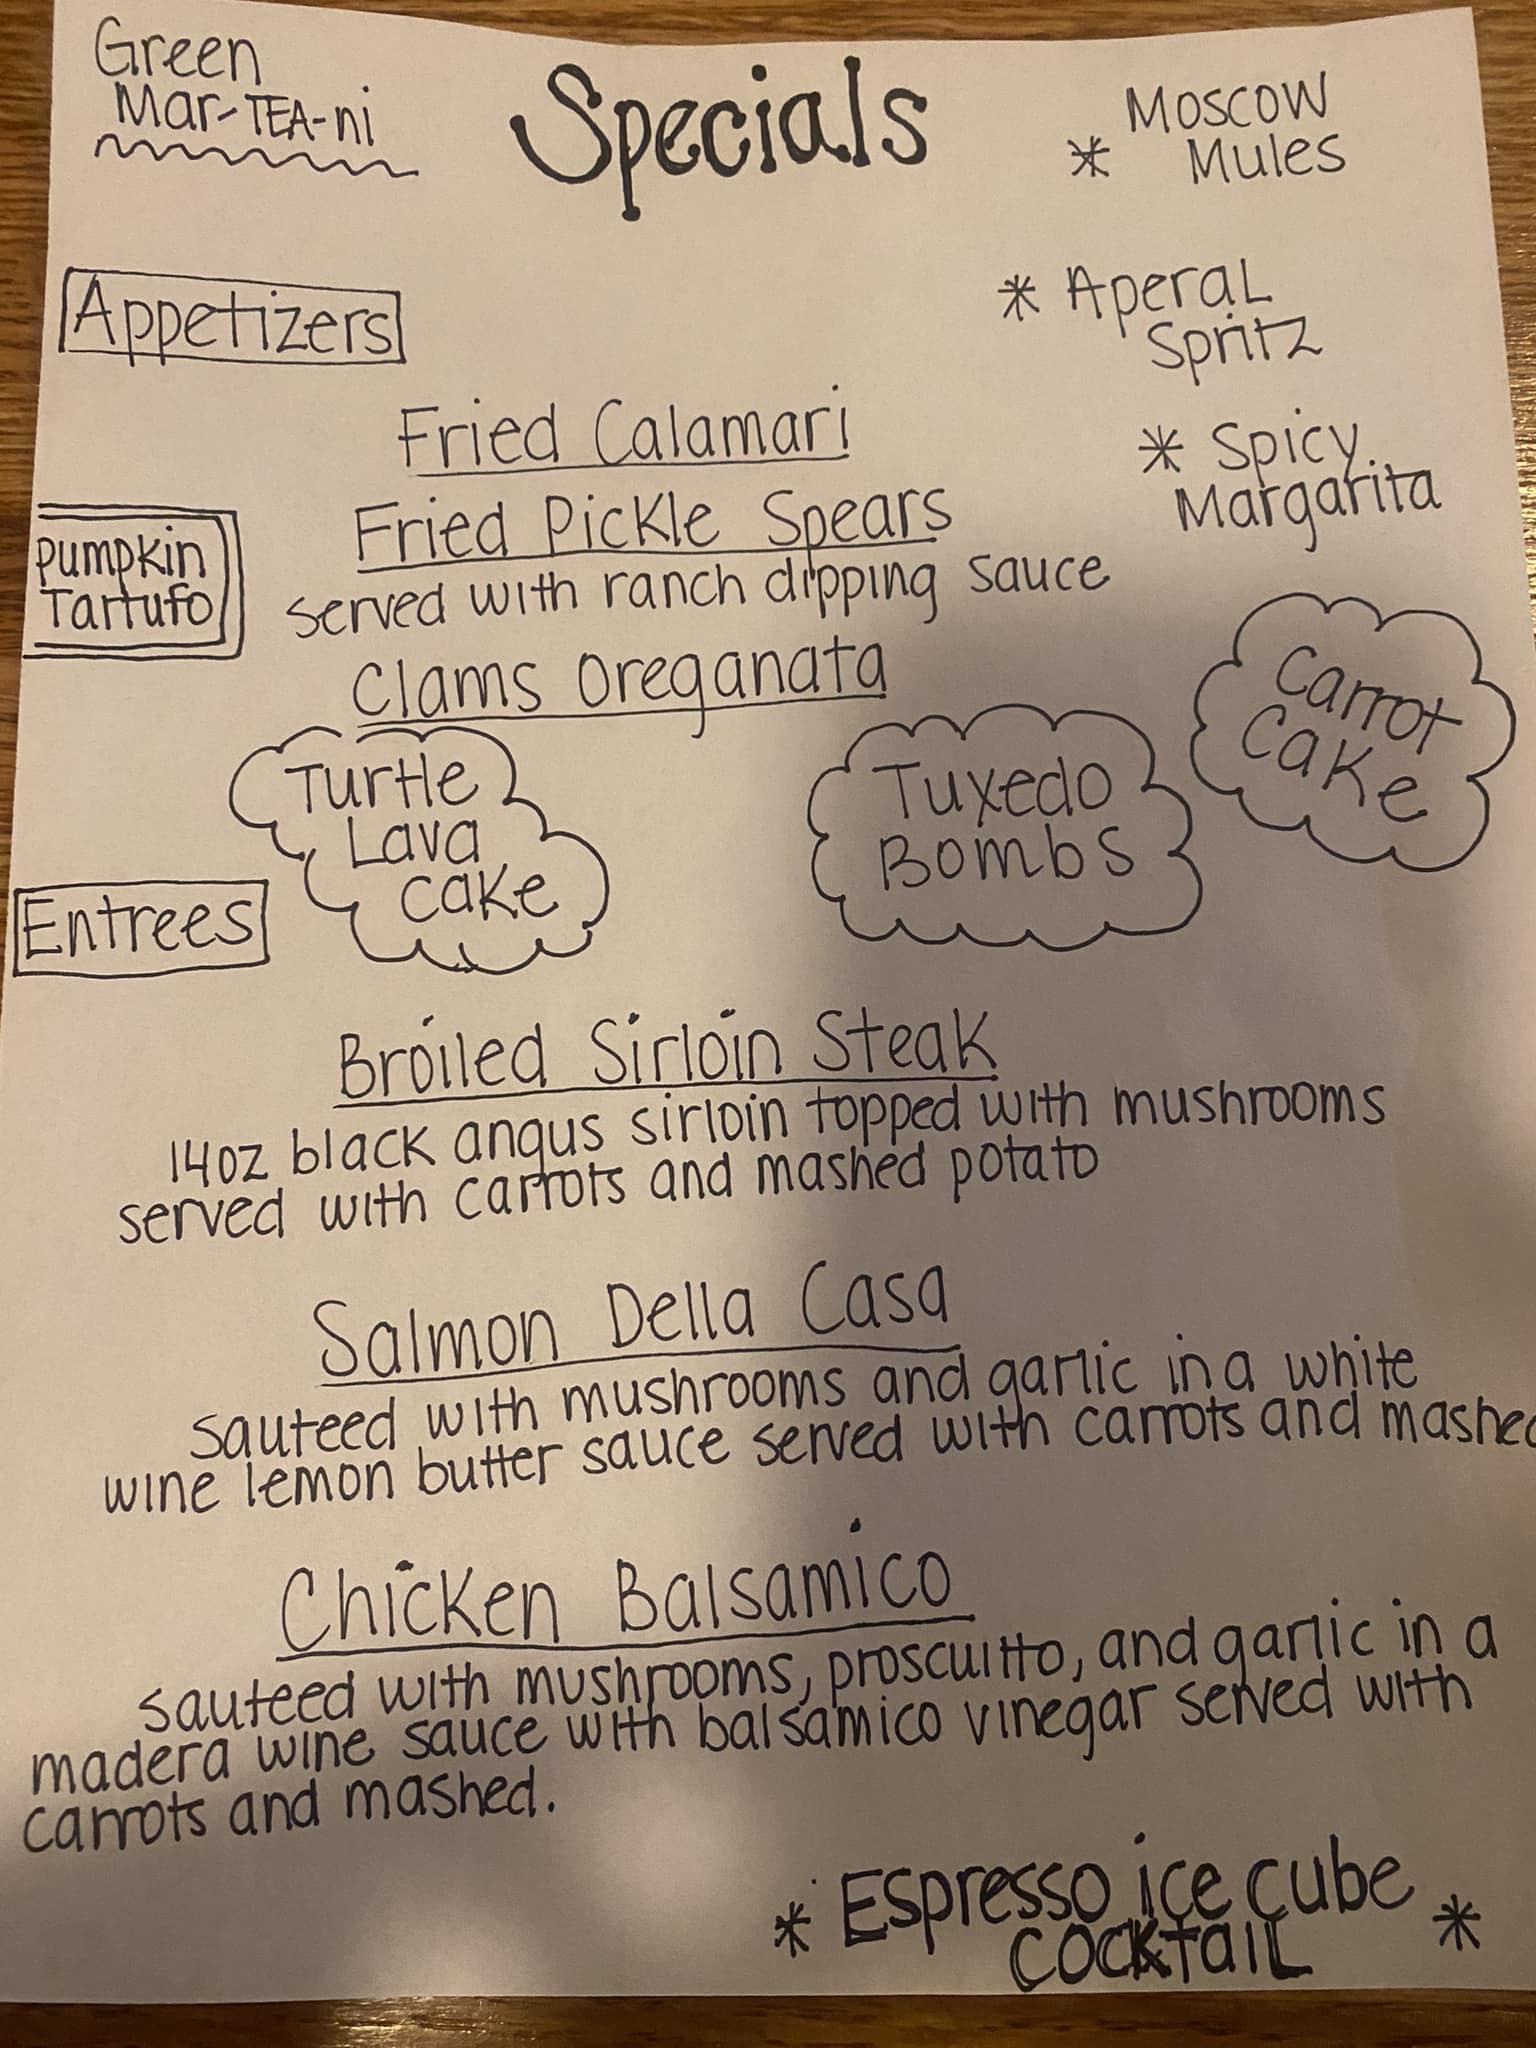 Green
Mar-TEA-ni
Specials
Moscow
* Mules
Appetizers
* Aperal
Spritz
Fried Calamari
* Spicy
Margarita
Pumpkin
Tartufo
Fried Pickle Spears
served with ranch dipping sauce
Clams Oreganata
Carrot
Cake
Turtle
Lava
Cake
Tuxedo
Bombs
Entrees
Broiled Sirloin Steak
14oz black angus sirloin topped with mushrooms
served with carrots and mashed potato
Salmon Della Casa
sauteed with mushrooms and garlic in a white
wine lemon butter sauce served with carrots and mashed
Chicken Balsamico
sauteed with mushrooms, proscuitto, and garlic in a
madera wine sauce with balsamico vinegar served with
carrots and mashed.
* Espresso ice cube *
cocktail